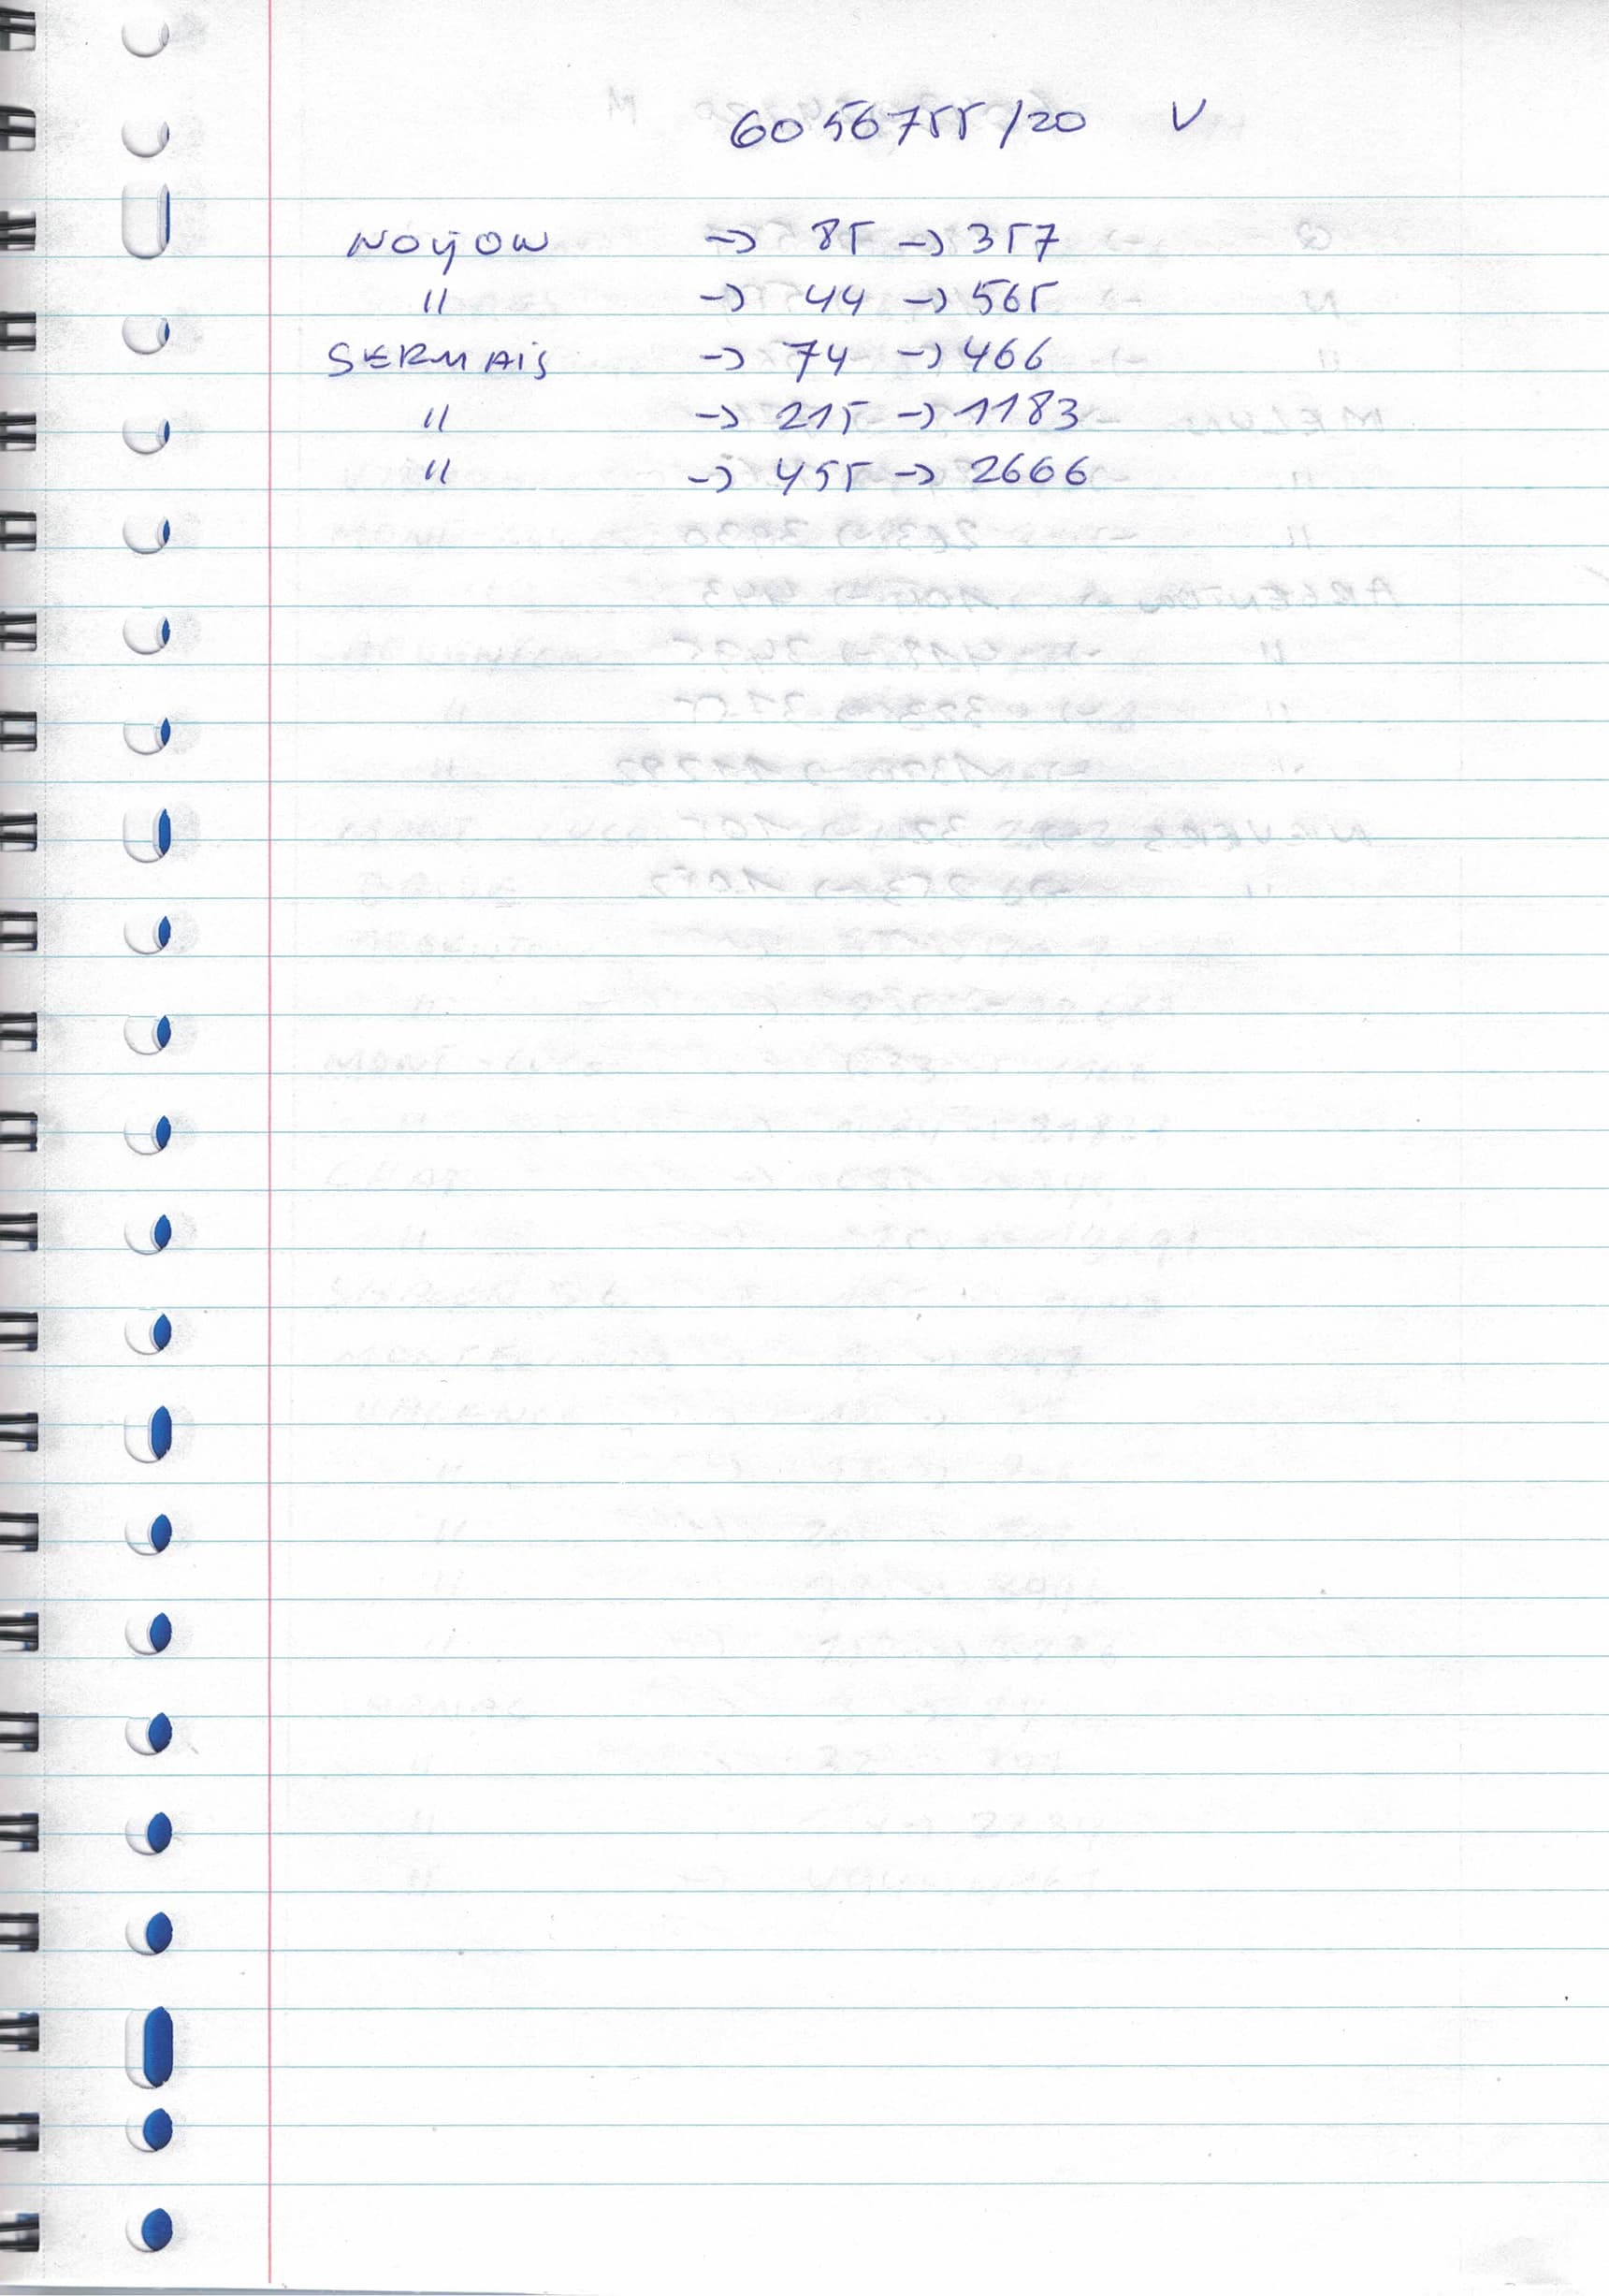 6056755/20 V
NOYON -> 85 -> 357
" -> 44 -> 565
SERMAIS -> 74 -> 466
" -> 215 -> 1183
" -> 455 -> 2666